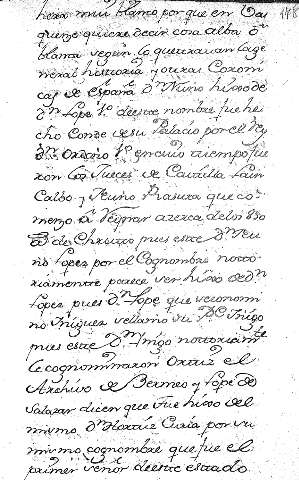 hera mui blanco por que en Bas
quenze quiere decir cosa alba o
blanca segun lo que traian la ge
neral historia y otras Coroni
cas de españa Dn Nuño hijo de
Dn Lope 1º de este nombre fue he
cho Conde de su Palacio por el Rey
Dn Ordoño 1º en cuio tiempo fue
ron los Jueces de Castilla Lain
Calbo y Nuño Rasura que co
menzo a Reynar azerca de los 850
de Christo pues este Dn Nu
ño Lopez por el Cognombre noto
riamente parece ser hijo de Dn
Lopez pues Dn Lope que se nom
no Iñiguez se llamó su Pe Iñigo
pues este Dn Iñigo notoriamte
le cognominaron Ortiz el
Archivo de Bermeo y Lope de
Salazar dicen que fue hijo del
mismo Dn Hortiz Curia por su
mismo cognombre que fue el
primer señor de este estado